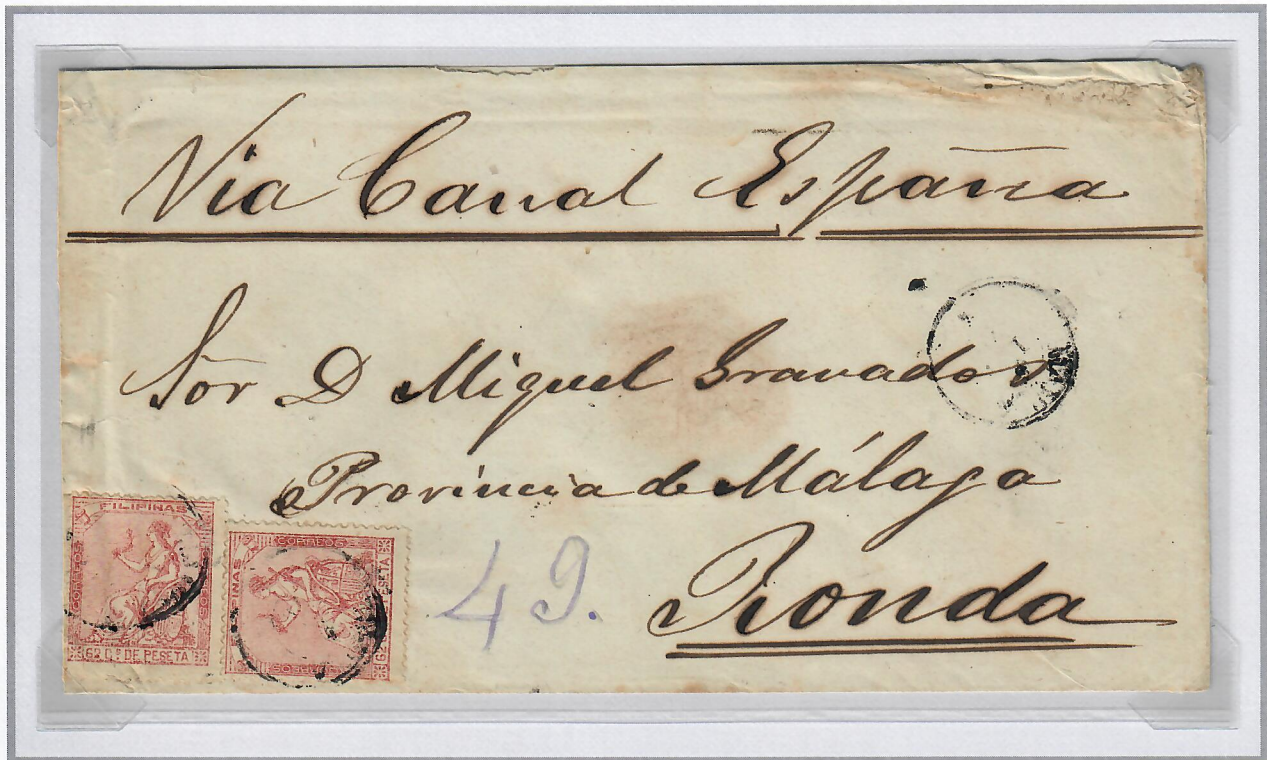 Via Canal España
Sor D Miguel Gravador
Provincia de Málaga
Ronda
49.
FILIPINAS
CORREOS
62 Cs DE PESETA
CORREOS